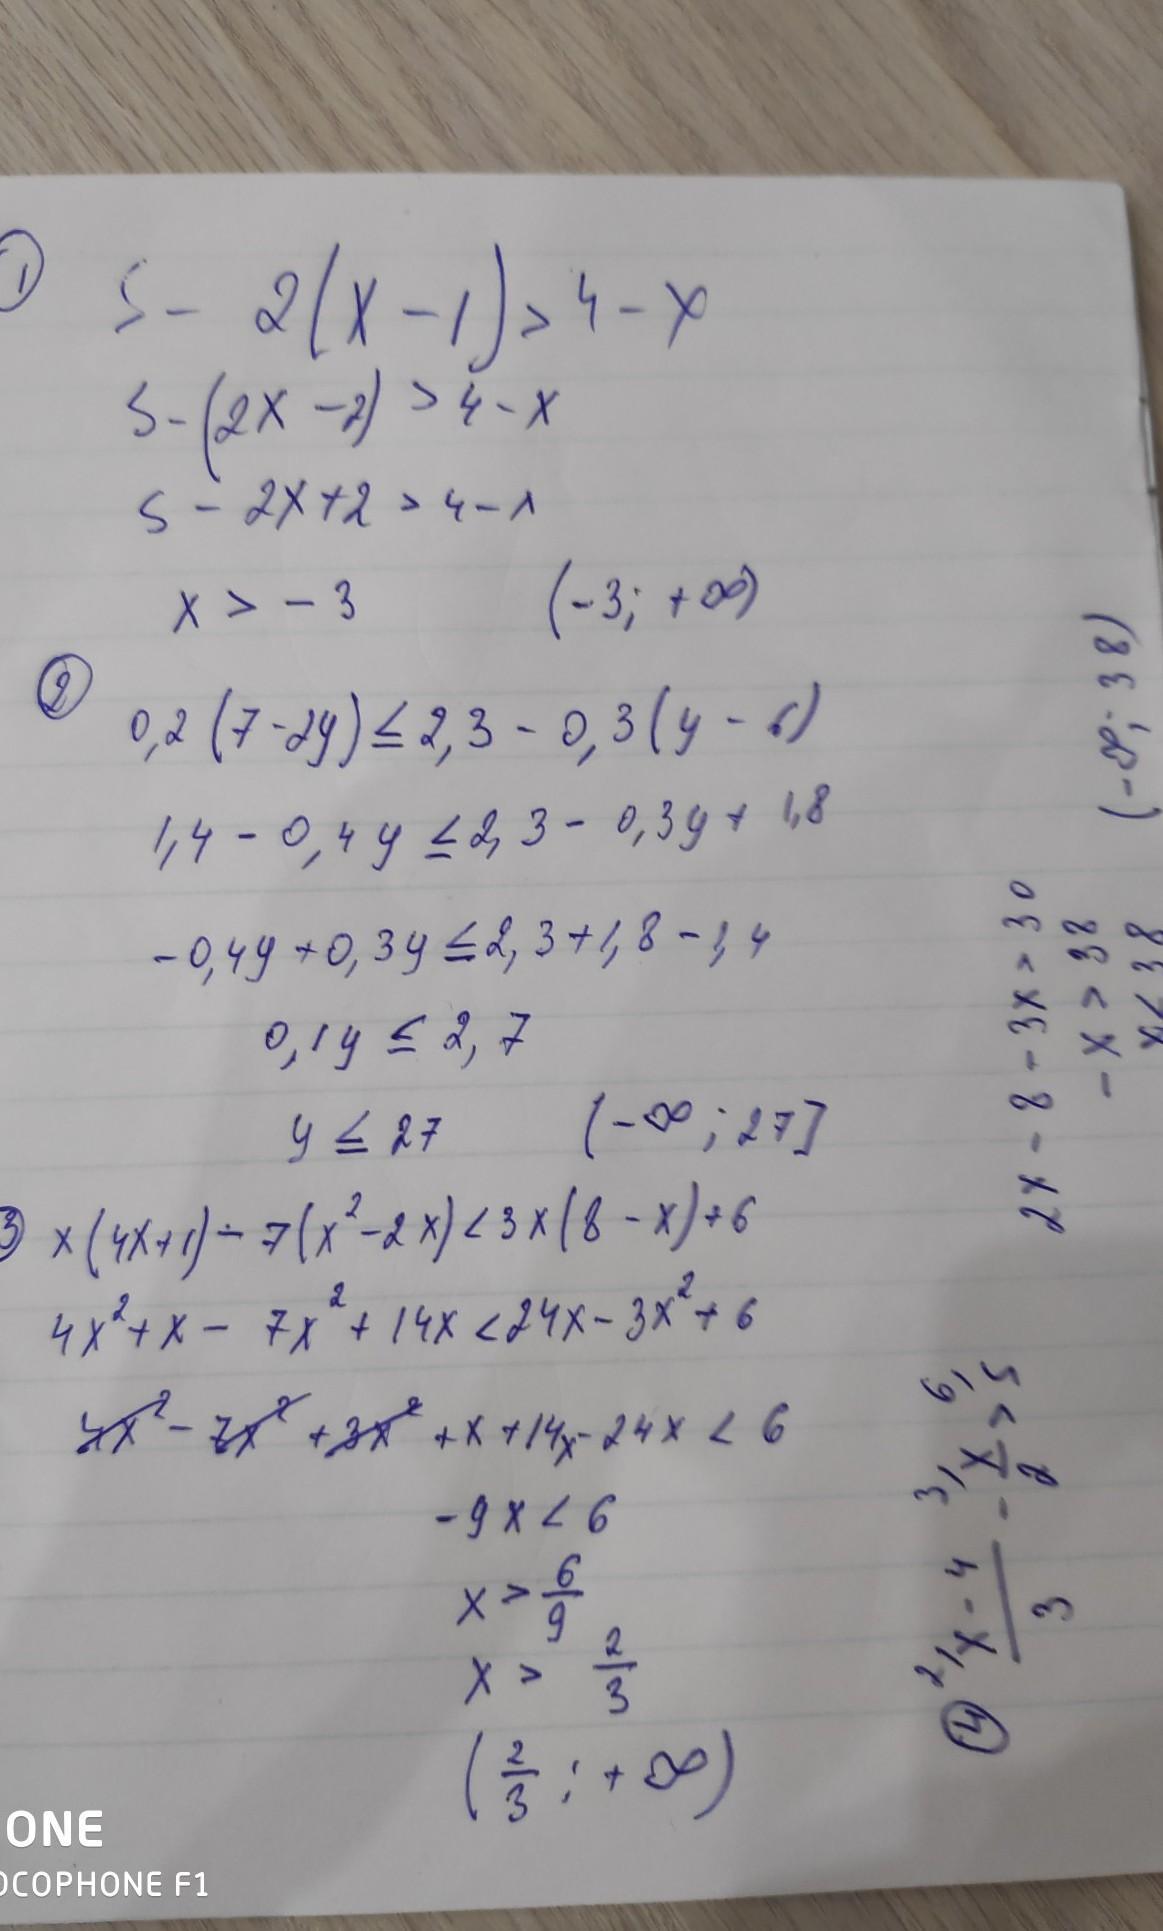 ①
5 - 2(x - 1) > 4 - x
5 - (2x - 2) > 4 - x
5 - 2x + 2 > 4 - x
x > - 3 (-3; +∞)
②
0,2 (7 - 2y) ≤ 2,3 - 0,3 (y - 6)
1,4 - 0,4y ≤ 2,3 - 0,3y + 1,8
-0,4y + 0,3y ≤ 2,3 + 1,8 - 1,4
0,1y ≤ 2,7
y ≤ 27 (-∞; 27]
③ x(4x+1) - 7(x² - 2x) < 3x(8 - x) + 6
4x² + x - 7x² + 14x < 24x - 3x² + 6
4x² - 7x² + 3x² + x + 14x - 24x < 6
-9x < 6
x > 6/9
x > 2/3
(2/3 ; +∞)
④ ²⁾x - 4/3 - ³⁾x/2 > ⁶⁾5
2x - 8 - 3x > 30
-x > 38
x < 38
(-∞; 38)
ONE
OCOPHONE F1